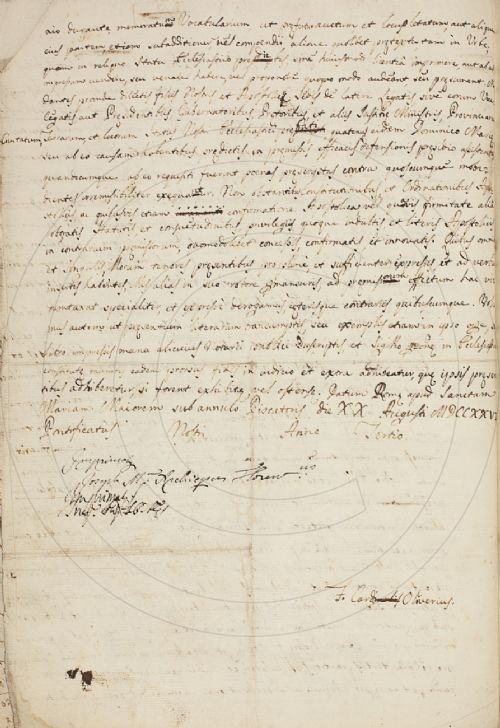 durante memoratus Vocabularium ut praefertur auctum et locupletatum, aut aliquam
eius partem etiam sub additionis vel compendii aliove quolibet praetextu tam in Urbe,
quam in reliquo Statu Ecclesiastico praedictis, sine huiusmodi licentia imprimere, aut ab alio
impressum vendere, seu venale habere, vel proponere quoquo modo audeant seu praesumant. Man
dantes proinde dilectis filiis Nostris et Apostolicae Sedis de latere Legatis sive eorum Vice
Legatis aut Praesidentibus Gubernatoribus Praetoribus, et aliis Iustitiae Ministris, Provinciarum
Civitatum, Terrarum, et locorum Status Nostri Ecclesiastici praedicti quatenus eidem Dominico Mariae
seu ab eo causam habentibus praedictis in praemissis efficacis defensionis praesidio assistentes
quandocumque ab eo requisiti fuerint poenas praescriptas contra quoscumque inobe
dientes irremissibiliter exequantur. Non obstantibus Constitutionibus et Ordinationibus Apo
stolicis ac quibusvis etiam confirmatione Apostolica vel quavis firmitate alia
roboratis Statutis et consuetudinibus privilegiis quoque indultis et literis Apostolicis
in contrarium praemissorum quomodolibet concessis confirmatis et innovatis. Quibus omnibus
et singulis illorum tenores praesentibus pro plene et sufficienter expressis et ad verbum
insertis habentes illis alias in suo robore permansuris ad praemissorum effectum hac vice
dumtaxat specialiter et expresse derogamus ceterisque contrariis quibuscumque. Volu
mus autem ut praesentium literarum transumptis seu exemplis etiam in ipso
libro impressis manu alicuius Notarii publici subscriptis et sigillo personae in Ecclesiastica
dignitate eadem prorsus fides in iudicio et extra adhibeatur, quae ipsis praesen
tibus adhiberetur, si forent exhibitae, vel ostensae. Datum Romae apud Sanctam
Mariam Maiorem sub annulo Piscatoris die XX Augusti MDCCXXVI
Pontificatus Nostri Anno Tertio
Joseph Ma Archiepiscopus Floren
F. Cardinalis Oliverius.